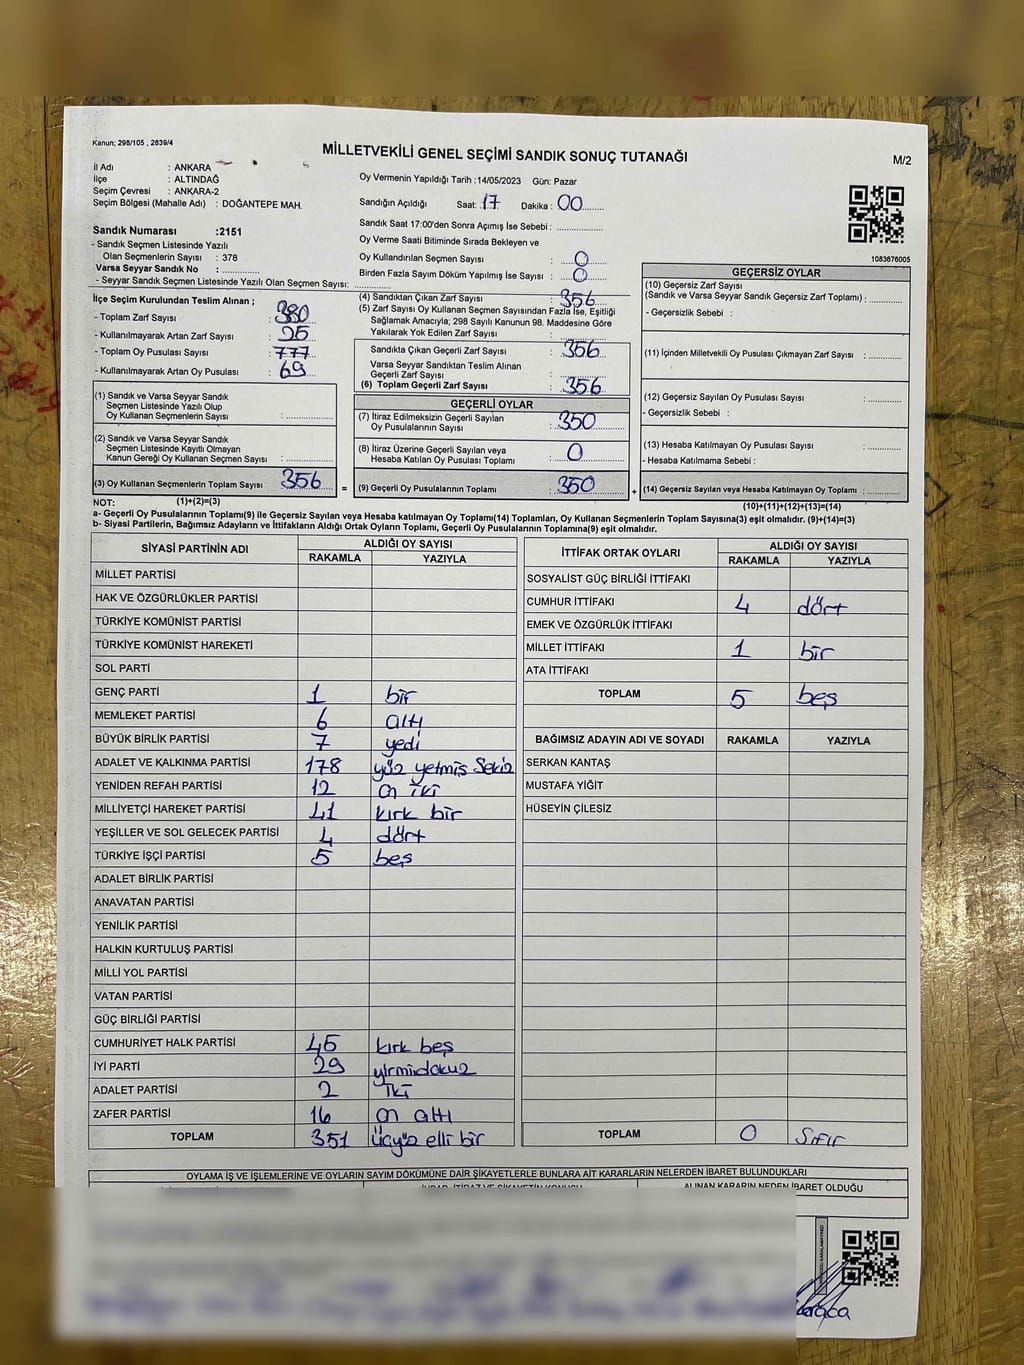 Kanun; 298/105 , 2839/4
MİLLETVEKİLİ GENEL SEÇİMİ SANDIK SONUÇ TUTANAĞI
M/2
İl Adı : ANKARA
İlçe : ALTINDAĞ
Seçim Çevresi : ANKARA-2
Seçim Bölgesi (Mahalle Adı) : DOĞANTEPE MAH.
Sandık Numarası :2151
- Sandık Seçmen Listesinde Yazılı
Olan Seçmenlerin Sayısı : 378
Varsa Seyyar Sandık No : ............
- Seyyar Sandık Seçmen Listesinde Yazılı Olan Seçmen Sayısı: ............
Oy Vermenin Yapıldığı Tarih :14/05/2023 Gün: Pazar
Sandığın Açıldığı Saat: 17 Dakika : 00
Sandık Saat 17:00'den Sonra Açılmış İse Sebebi : ............
Oy Verme Saati Bitiminde Sırada Bekleyen ve
Oy Kullandırılan Seçmen Sayısı : 0
Birden Fazla Sayım Döküm Yapılmış İse Sayısı : 0
1083676005
İlçe Seçim Kurulundan Teslim Alınan ;
- Toplam Zarf Sayısı : 380
- Kullanılmayarak Artan Zarf Sayısı : 25
- Toplam Oy Pusulası Sayısı : 777
- Kullanılmayarak Artan Oy Pusulası : 69
(1) Sandık ve Varsa Seyyar Sandık
Seçmen Listesinde Yazılı Olup
Oy Kullanan Seçmenlerin Sayısı : ............
(2) Sandık ve Varsa Seyyar Sandık
Seçmen Listesinde Kayıtlı Olmayan
Kanun Gereği Oy Kullanan Seçmen Sayısı : ............
(3) Oy Kullanan Seçmenlerin Toplam Sayısı : 356
(1)+(2)=(3)
(4) Sandıktan Çıkan Zarf Sayısı : 356
(5) Zarf Sayısı Oy Kullanan Seçmen Sayısından Fazla İse, Eşitliği
Sağlamak Amacıyla; 298 Sayılı Kanunun 98. Maddesine Göre
Yakılarak Yok Edilen Zarf Sayısı : ............
Sandıkta Çıkan Geçerli Zarf Sayısı : 356
Varsa Seyyar Sandıktan Teslim Alınan
Geçerli Zarf Sayısı : ............
(6) Toplam Geçerli Zarf Sayısı : 356
GEÇERLİ OYLAR
(7) İtiraz Edilmeksizin Geçerli Sayılan
Oy Pusulalarının Sayısı : 350
(8) İtiraz Üzerine Geçerli Sayılan veya
Hesaba Katılan Oy Pusulası Toplamı : 0
= (9) Geçerli Oy Pusulalarının Toplamı : 350 +
GEÇERSİZ OYLAR
(10) Geçersiz Zarf Sayısı
(Sandık ve Varsa Seyyar Sandık Geçersiz Zarf Toplamı) : ............
- Geçersizlik Sebebi :
(11) İçinden Milletvekili Oy Pusulası Çıkmayan Zarf Sayısı : ............
(12) Geçersiz Sayılan Oy Pusulası Sayısı : ............
- Geçersizlik Sebebi :
(13) Hesaba Katılmayan Oy Pusulası Sayısı : ............
- Hesaba Katılmama Sebebi :
(14) Geçersiz Sayılan veya Hesaba Katılmayan Oy Toplamı : ............
(10)+(11)+(12)+(13)=(14)
NOT:
a- Geçerli Oy Pusulalarının Toplamı(9) ile Geçersiz Sayılan veya Hesaba katılmayan Oy Toplamı(14) Toplamları, Oy Kullanan Seçmenlerin Toplam Sayısına(3) eşit olmalıdır. (9)+(14)=(3)
b- Siyasi Partilerin, Bağımsız Adayların ve İttifakların Aldığı Ortak Oyların Toplamı, Geçerli Oy Pusulalarının Toplamına(9) eşit olmalıdır.
SİYASİ PARTİNİN ADI ALDIĞI OY SAYISI
RAKAMLA YAZIYLA
MİLLET PARTİSİ
HAK VE ÖZGÜRLÜKLER PARTİSİ
TÜRKİYE KOMÜNİST PARTİSİ
TÜRKİYE KOMÜNİST HAREKETİ
SOL PARTİ
GENÇ PARTİ 1 bir
MEMLEKET PARTİSİ 6 altı
BÜYÜK BİRLİK PARTİSİ 7 yedi
ADALET VE KALKINMA PARTİSİ 178 yüz yetmiş sekiz
YENİDEN REFAH PARTİSİ 12 on iki
MİLLİYETÇİ HAREKET PARTİSİ 41 kırk bir
YEŞİLLER VE SOL GELECEK PARTİSİ 4 dört
TÜRKİYE İŞÇİ PARTİSİ 5 beş
ADALET BİRLİK PARTİSİ
ANAVATAN PARTİSİ
YENİLİK PARTİSİ
HALKIN KURTULUŞ PARTİSİ
MİLLİ YOL PARTİSİ
VATAN PARTİSİ
GÜÇ BİRLİĞİ PARTİSİ
CUMHURİYET HALK PARTİSİ 45 kırk beş
İYİ PARTİ 29 yirmidokuz
ADALET PARTİSİ 2 iki
ZAFER PARTİSİ 16 on altı
TOPLAM 351 üçyüz elli bir
İTTİFAK ORTAK OYLARI ALDIĞI OY SAYISI
RAKAMLA YAZIYLA
SOSYALİST GÜÇ BİRLİĞİ İTTİFAKI
CUMHUR İTTİFAKI 4 dört
EMEK VE ÖZGÜRLÜK İTTİFAKI
MİLLET İTTİFAKI 1 bir
ATA İTTİFAKI
TOPLAM 5 beş
BAĞIMSIZ ADAYIN ADI VE SOYADI RAKAMLA YAZIYLA
SERKAN KANTAŞ
MUSTAFA YİĞİT
HÜSEYİN ÇİLESİZ
TOPLAM 0 sıfır
OYLAMA İŞ VE İŞLEMLERİNE VE OYLARIN SAYIM DÖKÜMÜNE DAİR ŞİKAYETLERLE BUNLARA AİT KARARLARIN NELERDEN İBARET BULUNDUKLARI
ALINAN KARARIN NEDEN İBARET OLDUĞU